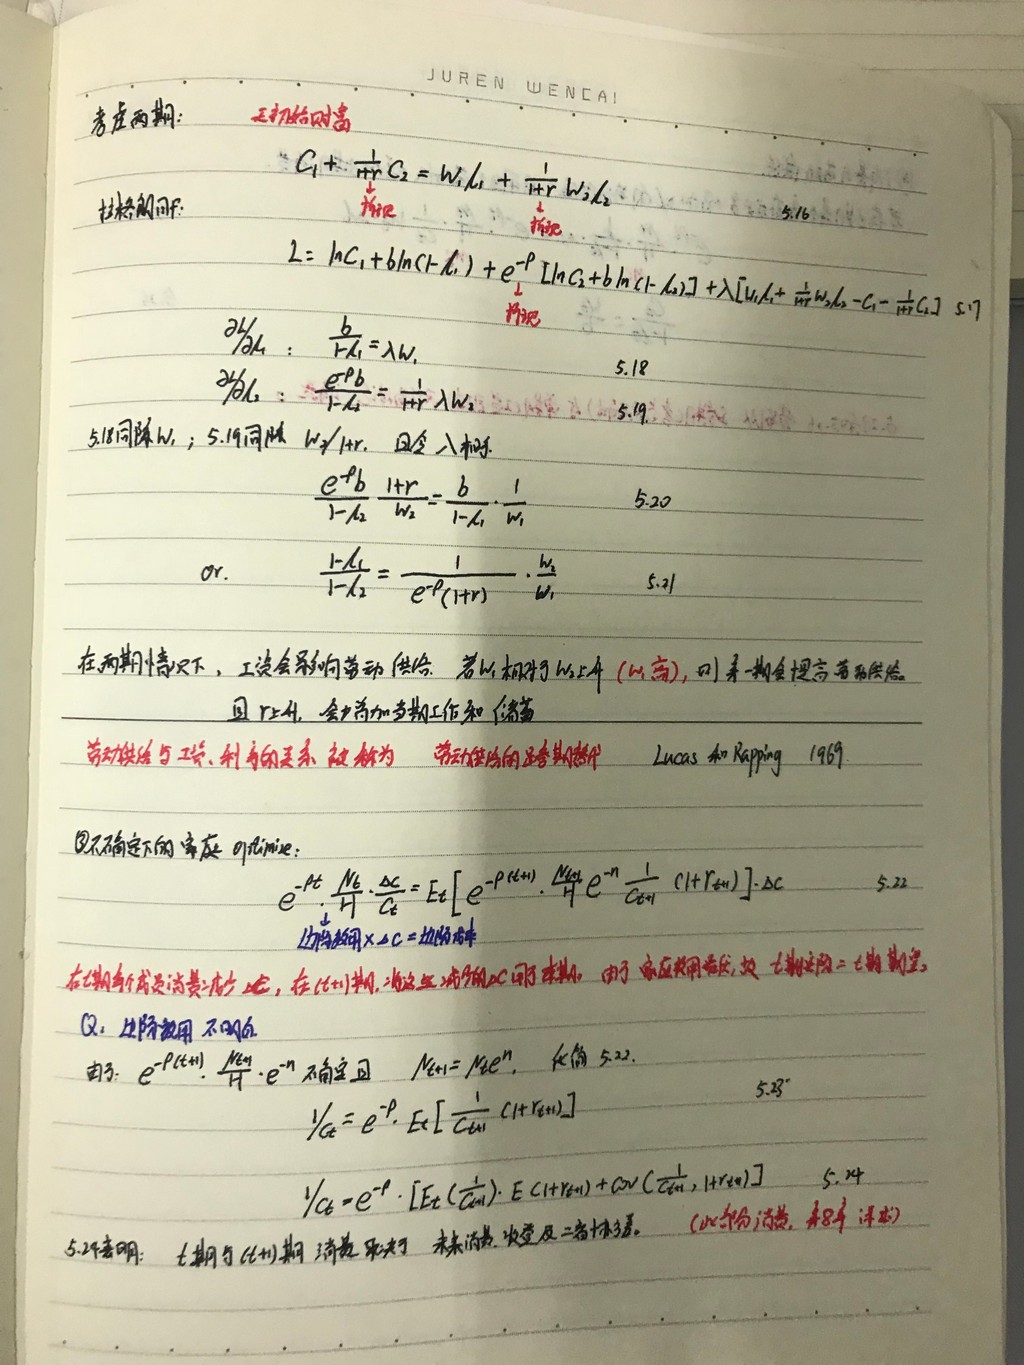 JUREN WENCAI
考虑两期: 无初始财富
C₁ + 1/(1+r) C₂ = W₁l₁ + 1/(1+r) W₂l₂ 5.16
折现 折现
拉格朗日f:
L = lnC₁ + bln(1-l₁) + e^{-ρ} [lnC₂ + bln(1-l₂)] + λ[W₁l₁ + 1/(1+r) W₂l₂ - C₁ - 1/(1+r) C₂] 5.17
折现
∂L/∂l₁ : b/(1-l₁) = λW₁ 5.18
∂L/∂l₂ : e^{-ρ}b/(1-l₂) = 1/(1+r) λW₂ 5.19
5.18同除W₁ ; 5.19同除 W₂/1+r. 且令 λ相等
e^{-ρ}b/(1-l₂) (1+r)/W₂ = b/(1-l₁) · 1/W₁ 5.20
or. (1-l₁)/(1-l₂) = 1/(e^{-ρ}(1+r)) · W₂/W₁ 5.21
在两期情况下, 工资会影响劳动供给. 若W₁相对于W₂上升 (W₁高), 则第一期会提高劳动供给。
且 r上升, 会增加当期工作和储蓄
劳动供给与工资、利率的关系 被称为 劳动供给的跨期替代 Lucas 和 Rapping 1969
不确定下的家庭 optimize:
e^{-ρt} · Nt/H · ΔC/Ct = Et[e^{-ρ(t+1)} · N_{t+1}/H e^{-n} 1/C_{t+1} (1+r_{t+1})] · ΔC 5.22
边际效用 × ΔC = 边际成本
在t期每个成员消费减少 ΔC, 在(t+1)期, 将这些减少的ΔC用于 期. 由于 家庭效用最优, 故 t期 = t期期望。
Q: 边际效用 不
由于: e^{-ρ(t+1)} · N_{t+1}/H · e^{-n} 不确定且 N_{t+1} = Nte^n, 化简 5.22.
1/Ct = e^{-ρ} · Et[1/C_{t+1} (1+r_{t+1})] 5.23
1/Ct = e^{-ρ} · [Et(1/C_{t+1}) · E(1+r_{t+1}) + Cov(1/C_{t+1}, 1+r_{t+1})] 5.24
5.24表明: t期与(t+1)期 消费 取决于 未来消费、收益及二者协方差。 (此部分消费, 第8章 详述)